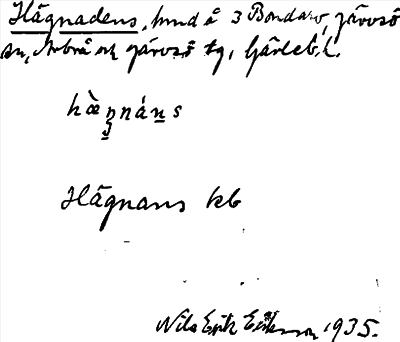 Hägnadens, hund å 3 Bondarv, Järvsö
sn, Arbrå och Järvsö tg, Gävleb. l.
hæ̀ŋnáns
Hägnans kb
Nils Erik Eriksson 1935.